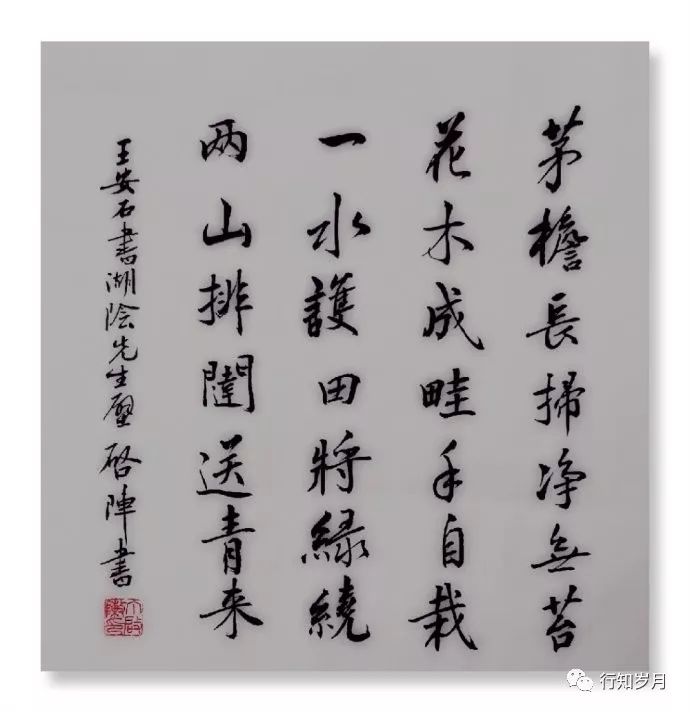 茅檐長掃净無苔
花木成畦手自栽
一水護田將緑繞
两山排闥送青来
王安石書湖陰先生壁 啓陣書
行知岁月